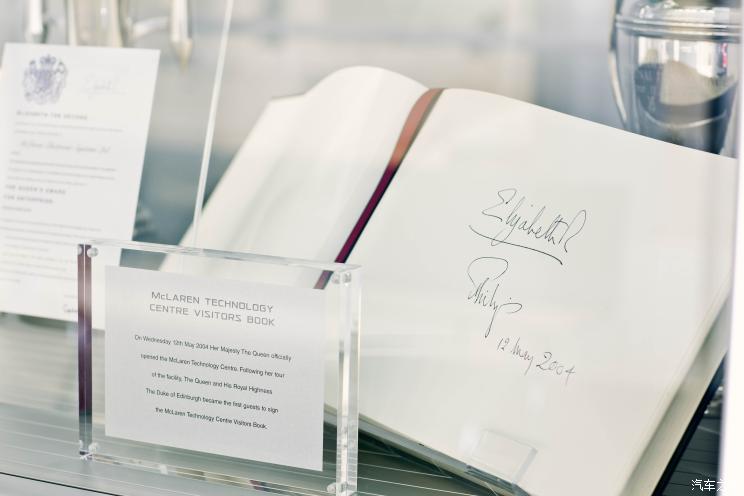 ELIZABETH THE SECOND
THE QUEEN'S AWARD
FOR ENTERPRISE
McLAREN TECHNOLOGY
CENTRE VISITORS BOOK
On Wednesday 12th May 2004 Her Majesty The Queen officially
opened the McLaren Technology Centre. Following her tour
of the facility, The Queen and His Royal Highness
The Duke of Edinburgh became the first guests to sign
the McLaren Technology Centre Visitors Book.
Elizabeth R
Philip
12 May 2004
汽车之